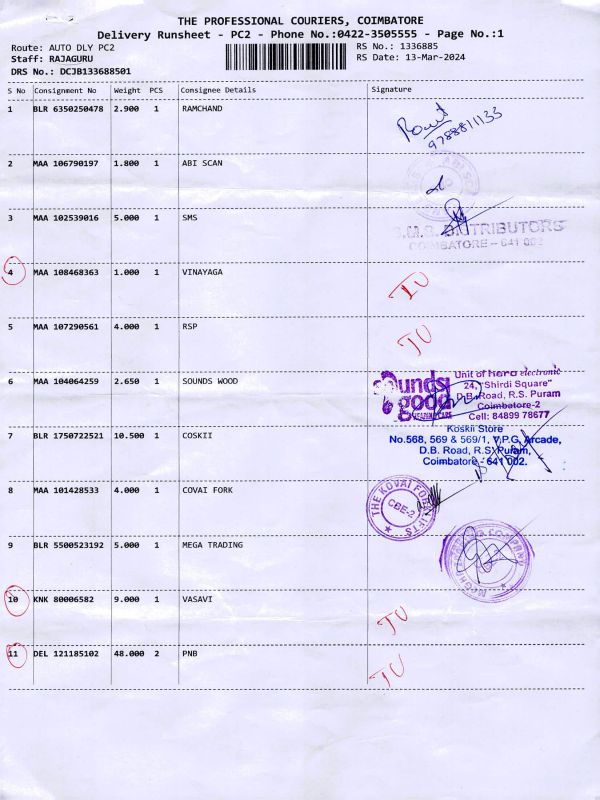 THE PROFESSIONAL COURIERS, COIMBATORE
Delivery Runsheet - PC2 - Phone No.:0422-3505555 - Page No.:1
Route: AUTO DLY PC2 RS No.: 1336885
Staff: RAJAGURU RS Date: 13-Mar-2024
DRS No.: DCJB133688501
S No Consignment No Weight PCS Consignee Details Signature
1 BLR 6350250478 2.900 1 RAMCHAND
9788811133
2 MAA 106790197 1.800 1 ABI SCAN
3 MAA 102539016 5.000 1 SMS
S.M.S. DISTRIBUTORS
COIMBATORE - 641 002
4 MAA 108468363 1.000 1 VINAYAGA
5 MAA 107290561 4.000 1 RSP
6 MAA 104064259 2.650 1 SOUNDS WOOD
sounds good
HEARING CARE
Unit of hero electronic
24, "Shirdi Square"
D.B. Road, R.S. Puram
Coimbatore-2
Cell: 84899 78677
7 BLR 1750722521 10.500 1 COSKII
Koskii Store
No.568, 569 & 569/1, V.P.G. Arcade,
D.B. Road, R.S. Puram,
Coimbatore - 641 002.
8 MAA 101428533 4.000 1 COVAI FORK
THE KOVAI FORKLIFTS
CBE-2
9 BLR 5500523192 5.000 1 MEGA TRADING
COMPANY
10 KNK 80006582 9.000 1 VASAVI
11 DEL 121185102 48.000 2 PNB